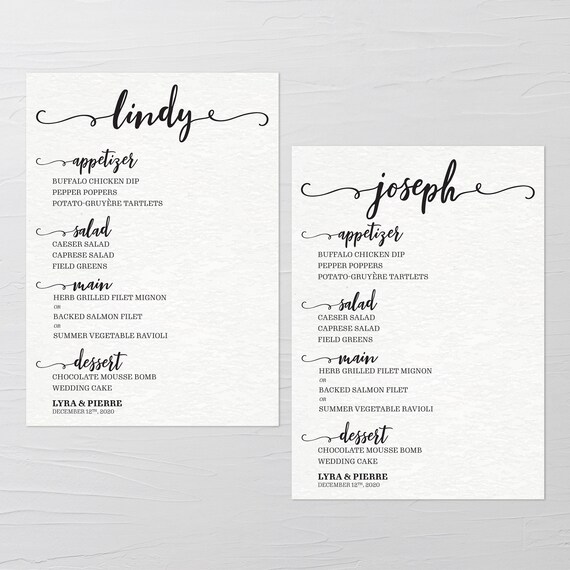 lindy
appetizer
BUFFALO CHICKEN DIP
PEPPER POPPERS
POTATO-GRUYÈRE TARTLETS
salad
CAESER SALAD
CAPRESE SALAD
FIELD GREENS
main
HERB GRILLED FILET MIGNON
OR
BACKED SALMON FILET
OR
SUMMER VEGETABLE RAVIOLI
dessert
CHOCOLATE MOUSSE BOMB
WEDDING CAKE
LYRA & PIERRE
DECEMBER 12TH, 2020
joseph
appetizer
BUFFALO CHICKEN DIP
PEPPER POPPERS
POTATO-GRUYÈRE TARTLETS
salad
CAESER SALAD
CAPRESE SALAD
FIELD GREENS
main
HERB GRILLED FILET MIGNON
OR
BACKED SALMON FILET
OR
SUMMER VEGETABLE RAVIOLI
dessert
CHOCOLATE MOUSSE BOMB
WEDDING CAKE
LYRA & PIERRE
DECEMBER 12TH, 2020